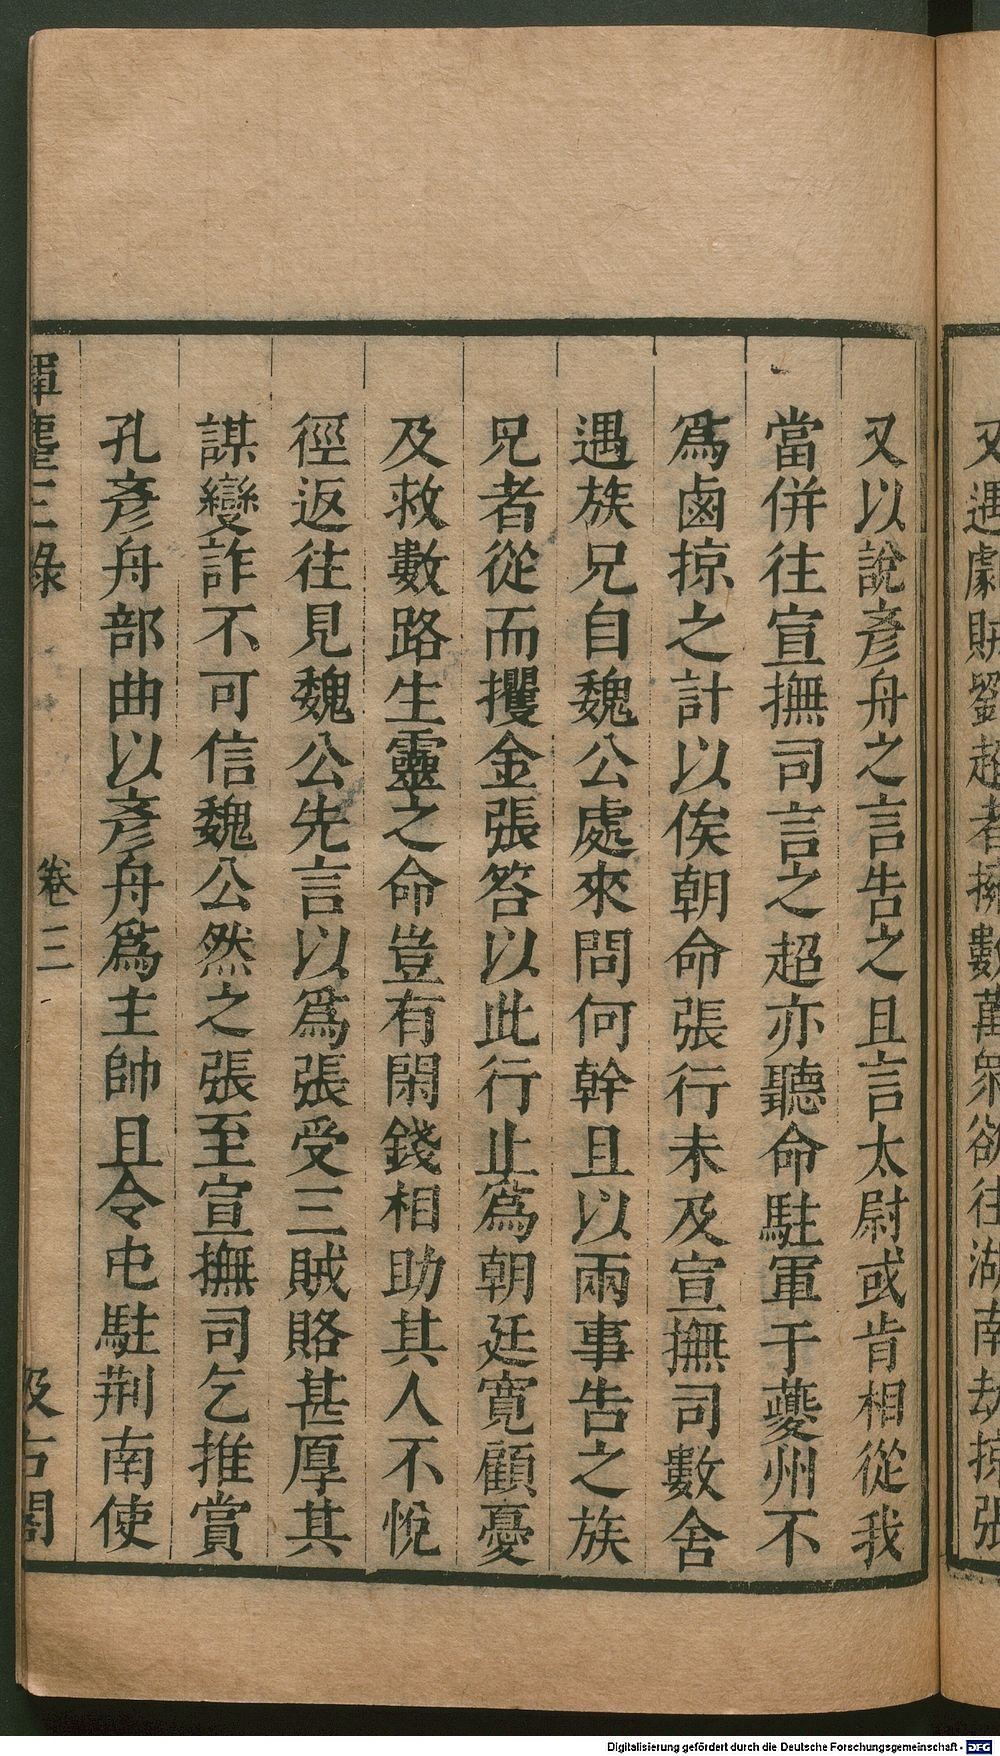 又遇劇賊劉超者擁數萬衆欲往湖南劫掠張
又以說彥舟之言告之且言太尉或肯相從我
當併往宣撫司言之超亦聽命駐軍于夔州不
爲鹵掠之計以俟朝命張行未及宣撫司數舍
遇族兄自魏公處來問何幹且以兩事告之族
兄者從而攫金張答以此行止爲朝廷寬顧憂
及救數路生靈之命豈有閑錢相助其人不悅
徑返往見魏公先言以爲張受三賊賂甚厚其
謀變詐不可信魏公然之張至宣撫司乞推賞
孔彥舟部曲以彥舟爲主帥且令屯駐荆南使
揮麈三錄 卷三 汲古閣
Digitalisierung gefördert durch die Deutsche Forschungsgemeinschaft - DFG